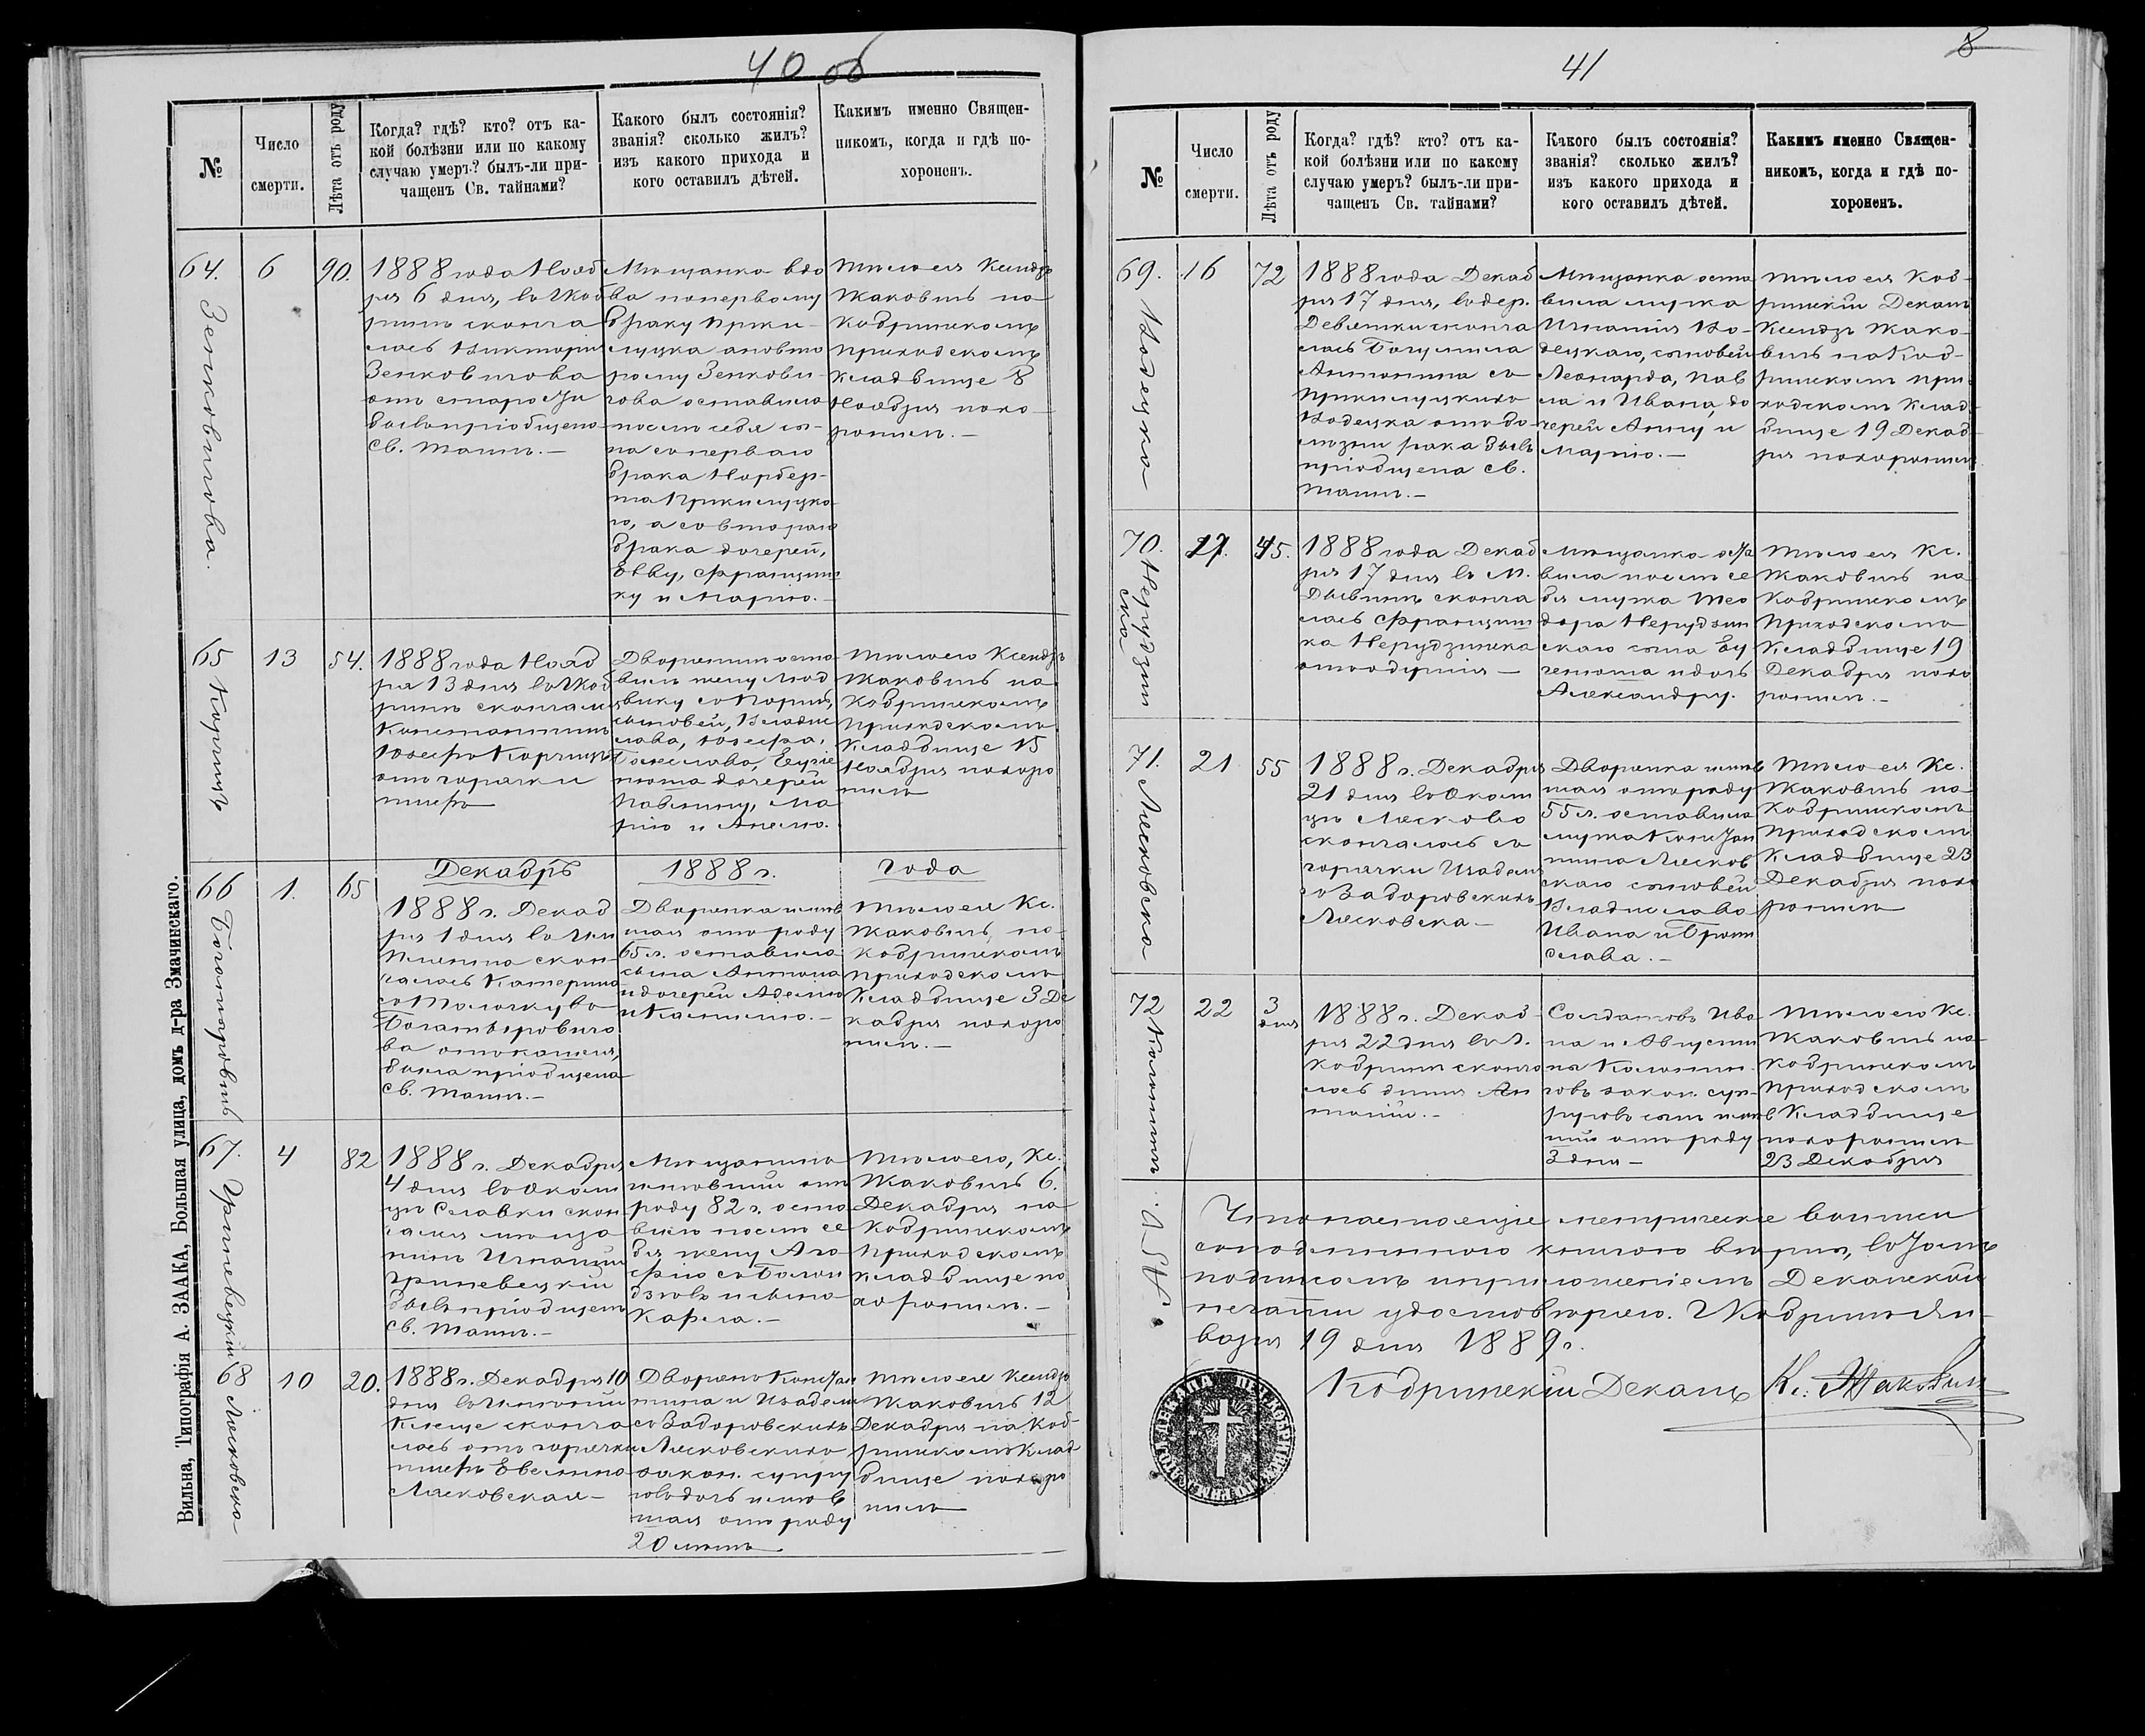 40 об
№
Число
смерти.
Лѣта отъ роду
Когда? гдѣ? кто? отъ ка-
кой болѣзни или по какому
случаю умеръ? былъ-ли при-
чащенъ Св. тайнами?
Какого былъ состоянія?
званія? сколько жилъ?
изъ какого прихода и
кого оставилъ дѣтей.
Какимъ именно Священ-
никомъ, когда и гдѣ по-
хороненъ.
64.
Зенковичова.
6
90.
1888 года Нояб
ря 6 дня, въ г Коб
ринѣ сконча
лась Виктория
Зенковичова
отъ старости
бывъ пріобщена
Св. Таинъ.—
Мѣщанка вдо
ва поперьвому
браку Прки-
луцка а по вто
рому Зенкови-
чова оставила
послѣ себя сы-
на съ перваго
брака Норбер-
та Пркилуцка
го, а со втораго
брака дочерей,
Евву, Францишк
ку и Марію.—
Тѣло ея Ксендзъ
Жаковичъ на
Кобринскомъ
Приходскомъ
кладбище 8
Ноября похо-
ронилъ.—
65
Корчицъ
13
54.
1888 года Нояб
ря 13 дня въ г Коб
ринѣ скончалс
Константинъ
Юзефъ Корчицъ
отъ горячки
Дворянинъ оста
вилъ жену Люд
вику
сыновей, Владис
лава, Юзефа,
Болеслава, Евге
нюша дочерей
Павлину, Ма
рію и Анелю.
Тѣло его Ксендзъ
Жаковичъ на
Кобринскомъ
Приходскомъ
Кладбище 15
Ноября похоро
нилъ
Декабрь 1888 г. года
66
Богатыровичъ
1.
65
1888 г. Декаб
ря 1 дня въ
скон-
чалась Катерина
Богатыровичо
ва отъ кашля,
была пріобщена
Св. Таинъ.—
Дворянка имѣв
шая отъ роду
65 л. оставила
сына Антона
и дочерей Аделю
и Камилю.—
Тѣло ея Кс.
Жаковичъ на
Кобринскомъ
приходскомъ
Кладбище 3 Де
кабря похоро
нилъ.—
67.
Гриневецкій
4
82
1888 г. Декабря
4 дня въ Околи
цѣ Славки скон
чался мѣща
нинъ Игнацій
Гриневецкій
бывъ пріобщенъ
Св. Таинъ.—
Мѣщанинъ
имѣвшій отъ
роду 82 г. оста
вилъ послѣ се
бя жену
и сына
Карла.—
Тѣло его, Кс.
Жаковичъ 6.
Декабря на
Кобринскомъ
Приходскомъ
кладбище по
хоронилъ.—
68
Лясковска
10
20.
1888 г. Декабря 10
дня въ имѣніи
Клеще сконча
лась отъ горячки
Евелина
Лясковская—
Дворянъ Констан
тина и Изабели
съ Задоровскихъ
Лясковскихъ
закон. супру
говъ дочь имѣв
шая отъ роду
20 лѣтъ
Тѣло ея Ксендзъ
Жаковичъ 12
Декабря на Коб-
ринскомъ Клад
бище похоро
нилъ
Вильна, Типографія А. ЗААКА, Большая улица, домъ д-ра Змачинскаго.
41
8
№
Число
смерти.
Лѣта отъ роду
Когда? гдѣ? кто? отъ ка-
кой болѣзни или по какому
случаю умеръ? былъ-ли при-
чащенъ Св. тайнами?
Какого былъ состоянія?
званія? сколько жилъ?
изъ какого прихода и
кого оставилъ дѣтей.
Какимъ именно Священ-
никомъ, когда и гдѣ по-
хороненъ.
69.
Водецка
16
72
1888 года Декаб
ря 17 дня, въ дер.
Девятки сконча
лась Богумила
Антонина съ
Пркилуцкихъ
Водецка отъ бо-
лѣзни рака бывъ
пріобщена Св.
Таинъ.—
Мѣщанка оста
вила мужа
Игнатія Во-
децкаго, сыновей
Леонарда, Пав
ла и Ивана, до
черей Анну и
Марію.—
Тѣло ея Коб-
ринскій Деканъ
Ксендзъ Жако-
вичъ на Коб-
ринскомъ при-
ходскомъ Клад-
бище 19 Декаб
ря похоронилъ
70.
Нерудзин
ска
17.
45.
1888 года Декаб
ря 17 дня въ м.
Дывинѣ сконча
лась Францишк
ка Нерудзинска
отъ
Мѣщанка оста
вила послѣ се
бя мужа Тео
дора Нерудзин
скаго сына Ев
генюша и дочь
Александру.
Тѣло ея Кс.
Жаковичъ на
Кобринскомъ
Приходскомъ
Кладбище 19
Декабря похо
ронилъ.—
71.
Лясковска
21
55
1888 г. Декабря
21 дня въ Околи
цѣ Лясково
скончалась съ
горячки Изабел
съ Задоровскихъ
Лясковска—
Дворянка имѣв
шая отъ роду
55 л. оставила
мужа Констан
тина Лясков
скаго сыновей
Владислава
Ивана и Брони
слава.—
Тѣло ея Кс.
Жаковичъ на
Кобринскомъ
Приходскомъ
Кладбище 23
Декабря похо
ронилъ
72
22
3
дня
1888 г. Декаб-
ря 22 дня въ г.
Кобринѣ сконча
лось дитя Ан
тоній.—
Солдатовъ Ива
на и Августи
ны
закон. суп-
руговъ сынъ имѣв
шій отъ роду
3 дня—
Тѣло его Кс.
Жаковичъ на
Кобринскомъ
Приходскомъ
Кладбище
похоронилъ
23 Декабря
Что настоящіе метрическіе выписи
съ подлинною книгою вѣрны, въ томъ
подписомъ и приложеніемъ Деканской
печати удостовѣряю. г Кобринъ Ян-
варя 19 дня 1889 г.
Кобринскій Деканъ Кс. Жаковичъ